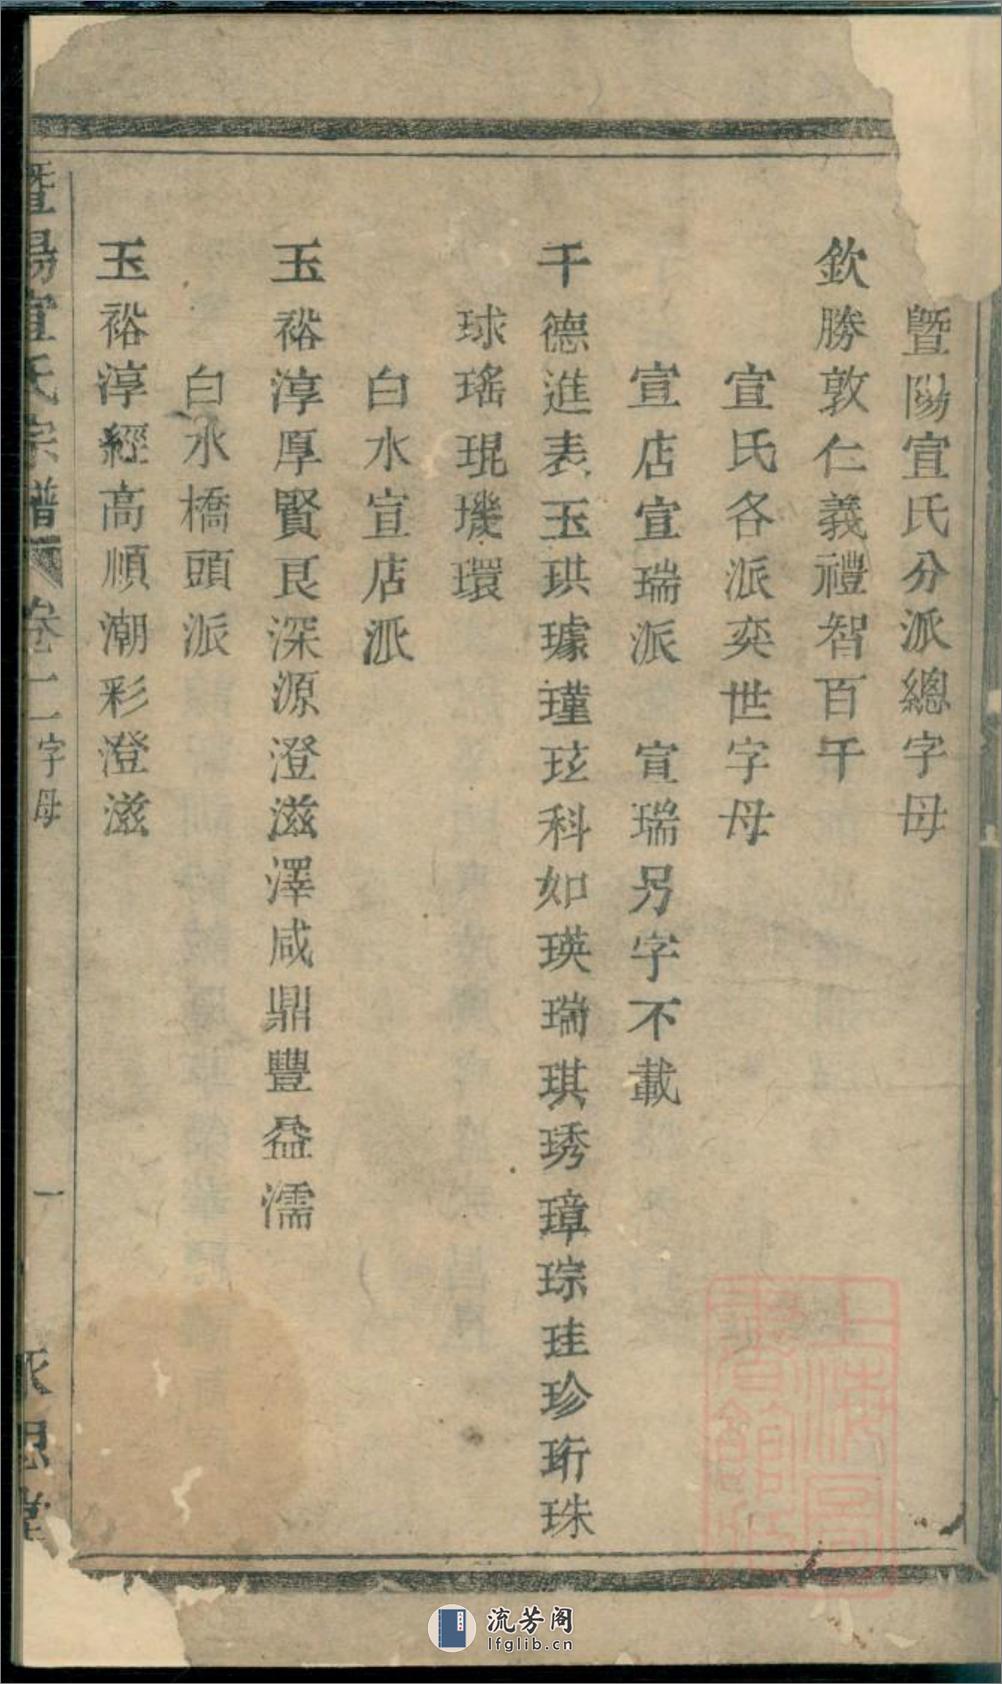 暨陽宣氏分派總字母
欽勝敦仁義禮智百千
宣氏各派奕世字母
宣店宣瑞派　宣瑞另字不載
千德進表玉珙璩瑾玹科如瑛瑞琪琇璋琮珪珍珩珠
球瑤琨璣環
白水宣店派
玉裕淳厚賢良深源澄滋澤咸鼎豐益濡
白水橋頭派
玉裕淳經高順潮彩澄滋
暨陽宣氏宗譜 卷二 字母 一 永思堂
上海圖書館藏
流芳阁
lfglib.cn